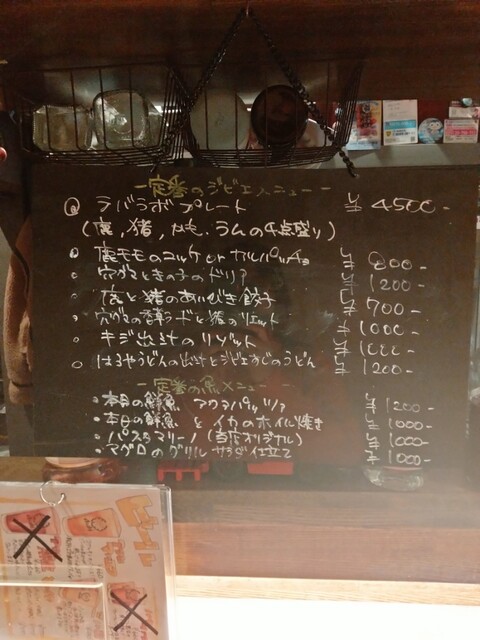 ー定番のジビエメニューー
ラバラボプレート ¥4500-
(鹿,猪,かも,ラムの4点盛り)
鹿モモのユッケorカルパッチョ ¥800-
穴グマときの子のドリア ¥1200-
鹿と猪のあいびき餃子 ¥700-
穴グマの ラードと猪のリエット ¥1000-
キジ出汁のリゾット ¥1000-
はるやうどんの出汁とジビエすじのうどん ¥1200-
ー定番の魚メニューー
・本日の鮮魚 アクアパッツァ ¥1200-
・本日の鮮魚とイカのホイル焼き ¥1000-
・パスタマリーノ(当店オリジナル) ¥1000-
・マグロのグリル サラダ仕立て ¥1000-